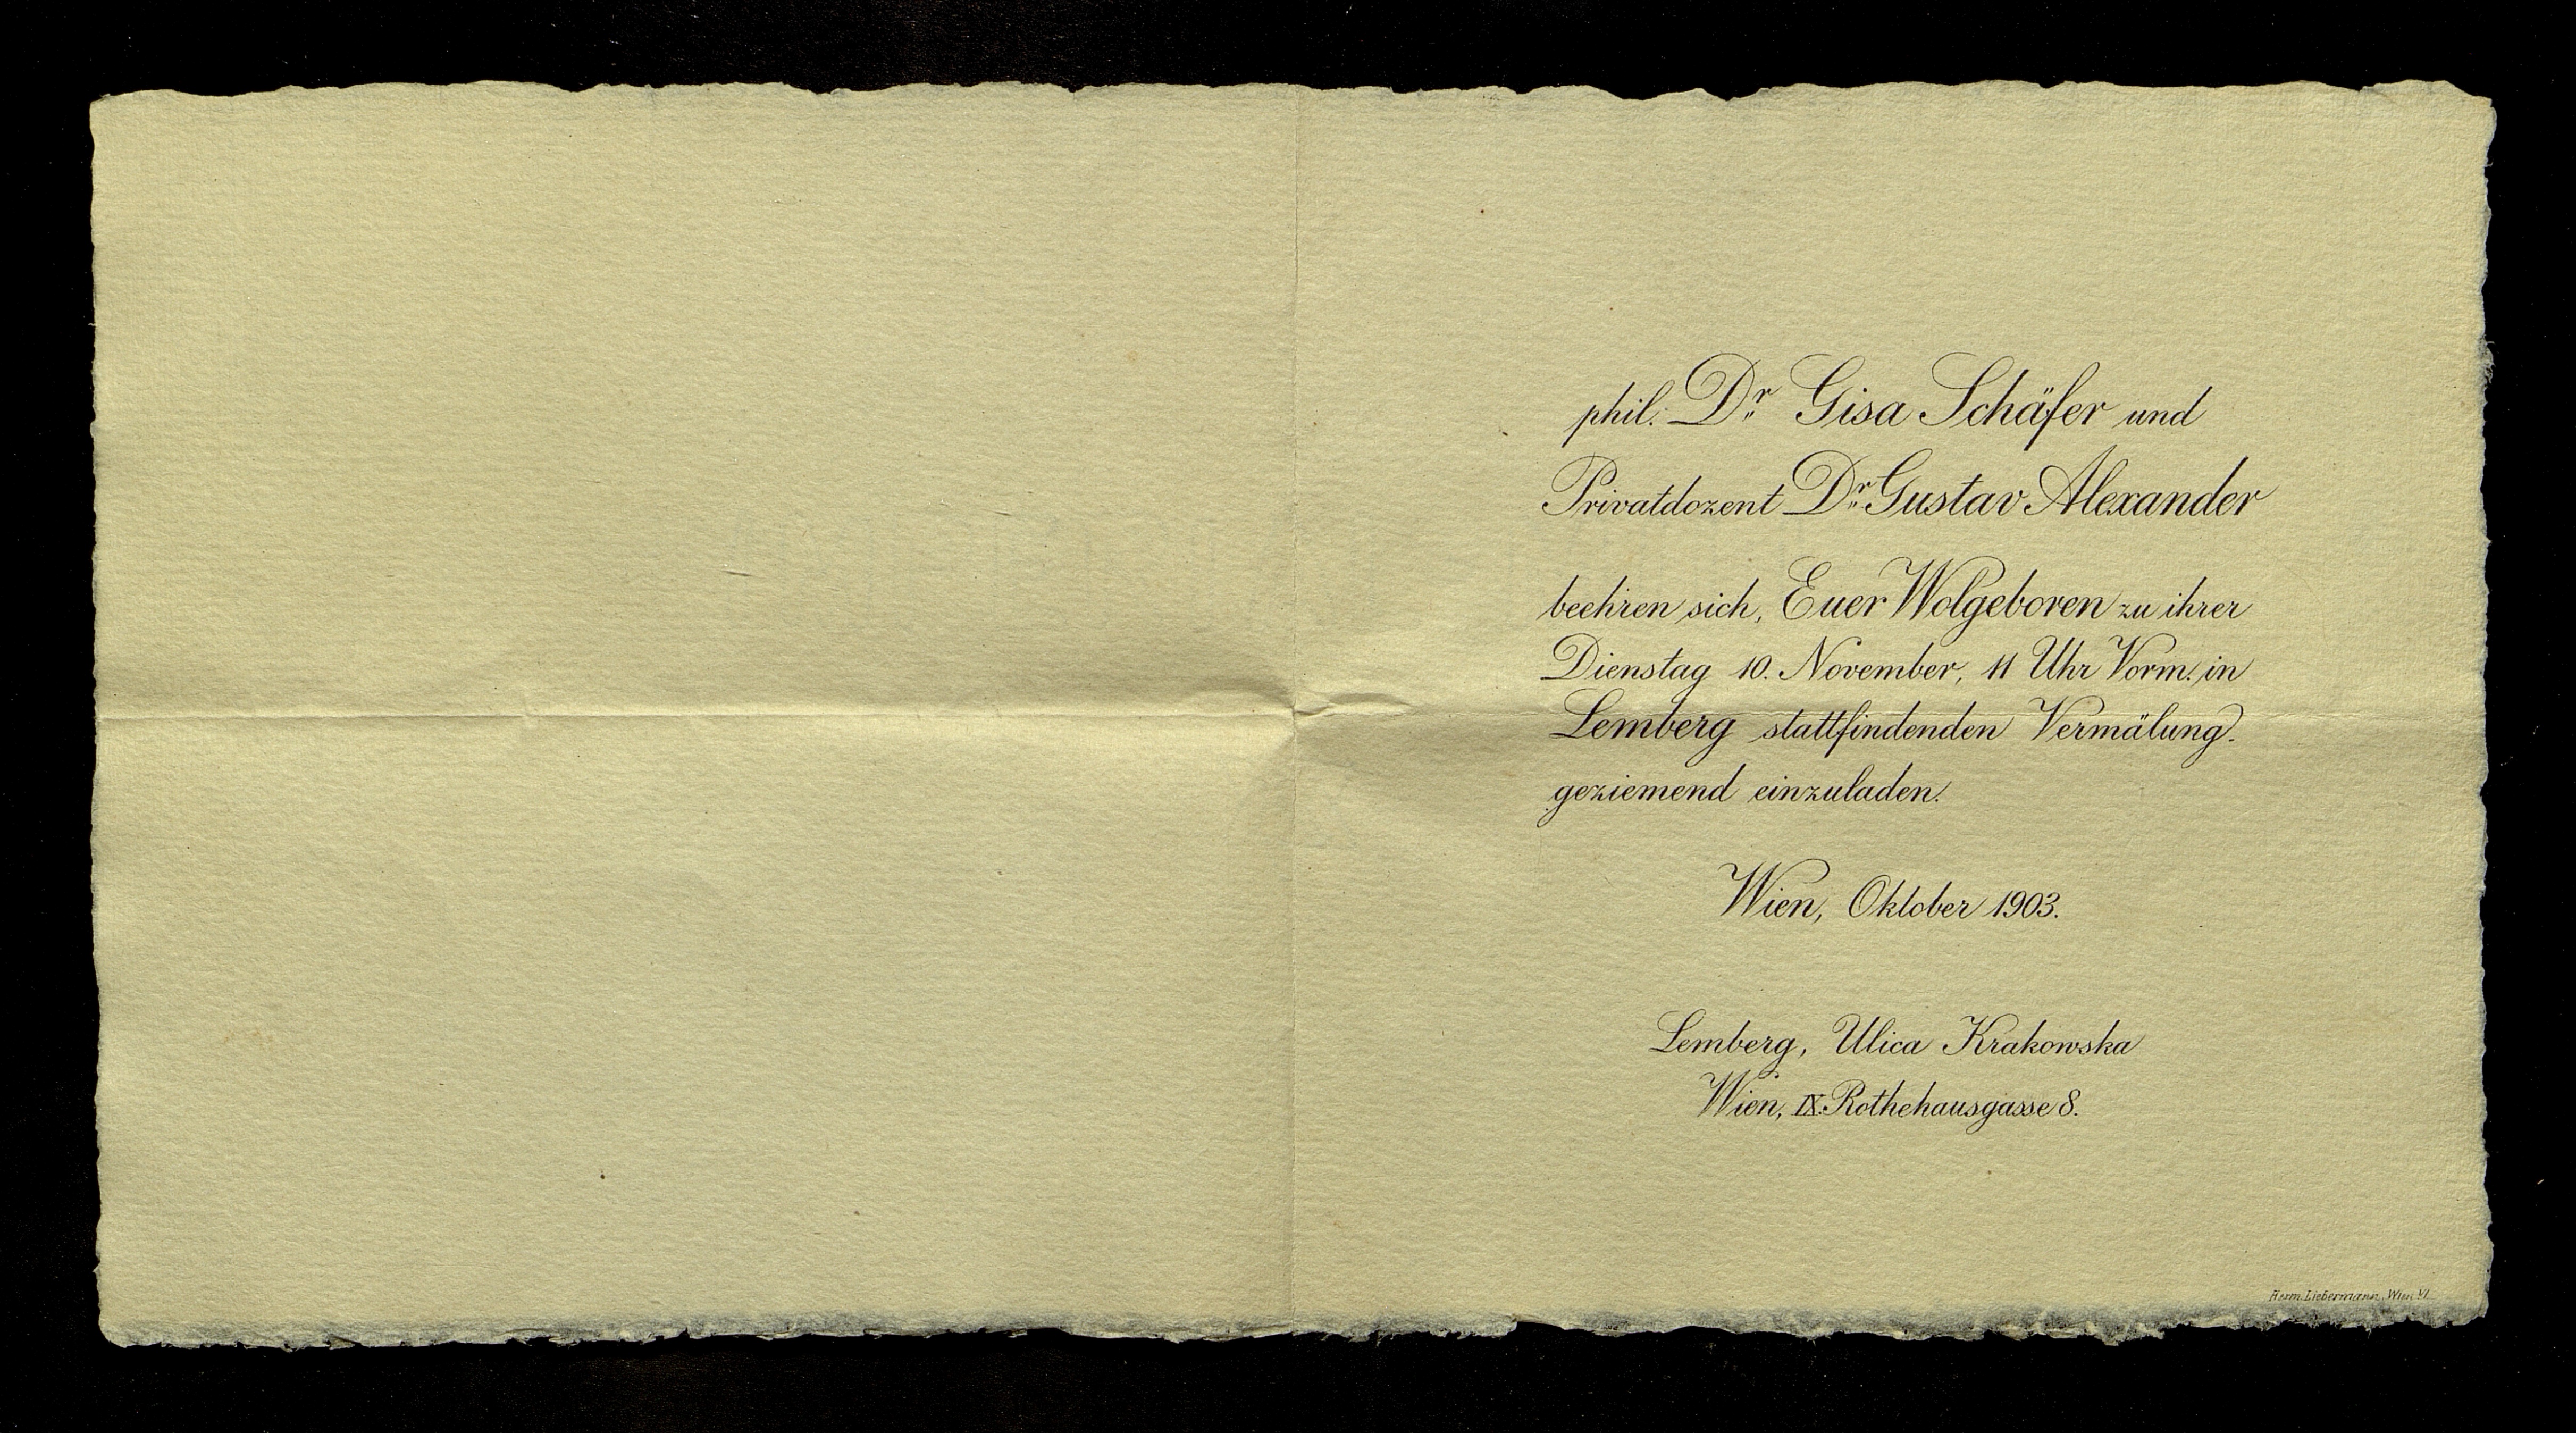 phil. Dr. Gisa Schäfer und
Privatdozent Dr. Gustav Alexander
beehren sich, Euer Wolgeboren zu ihrer
Dienstag 10. November, 11 Uhr Vorm. in
Lemberg stattfindenden Vermälung
geziemend einzuladen.
Wien, Oktober 1903.
Lemberg, Ulica Krakowska
Wien, IX. Rothehausgasse 8.
Herm. Liebermann, Wien VI.